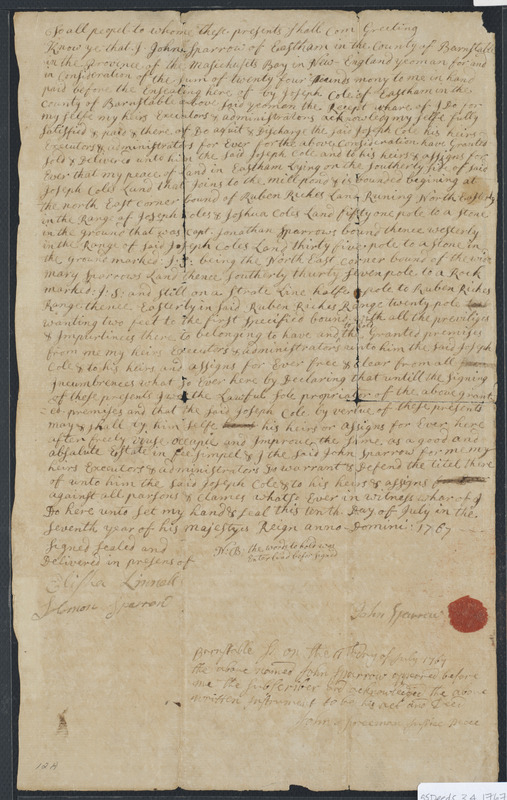 To all peopel to whome these presents shall Com Greeting
Know ye that I John Sparrow of Eastham in the County of Barnstable
in the Provence of the Massechusits Bay in New England yeoman for and
in Consideration of the Sum of twenty four pounds mony to me in hand
paid before the Ensealing here of by Joseph Cole of Eastham in the
County of Barnstable above said yeoman the Recept whare of I Do for
my selfe my heirs Executors & administrators acknowledg my selfe fully
Satisfied & paid & there of Do aquit & Discharge the said Joseph Cole his heirs
Executors & administrators for Ever for the above Consideration have Granted
Sold & Delivered unto him the said Joseph Cole and to his heirs & assigns for
Ever that my peace of Land in Eastham Lying on the Southerly side of said
Joseph Coles Land that Joins to the mill pond & is bounded begining at
the north East corner bound of Ruben Riches Land Runing North Easterly
in the Range of Joseph Coles & Joshua Coles Land fifty one pole to a stone
in the ground that was Capt. Jonathan Sparrows bound thence westerly
in the Range of said Joseph Coles Land thirty five pole to a stone in
the ground marked: J:S: being the North East corner bound of the
mary Sparrows Land thence Southerly thirty seven pole to a Rock
marked: J: S: and still on a Strate Line halfe a pole to Ruben Riches
Range thence Easterly in said Ruben Riches Range twenty pole
wanting two feet to the first specified bound with all the previliges
& Impurtinces there to belonging to have and to hold the Granted premises
from me my heirs Executors & administrators unto him the said Joseph
Cole & to his heirs and assigns for Ever free & Clear from all
Incumbrences what so Ever here by Declaring that untill the signing
of these presents I am the Lawful sole proprietor of the above grant
-ed premises and that the said Joseph Cole by vertue of these presents
may & shall by him selfe his heirs or assigns for Ever here
after freely use occupie and Improve the same, as a good and
absalute Estate in fee simpel & I the said John Sparrow for me my
heirs Executors & administrators Do warrant & Defend the titel there
of unto him the said Joseph Cole & to his heirs & assigns
against all parsons & Clames whatso Ever in witness whar of I
Do here unto set my hand & seal this tenth Day of July in the
Seventh year of his majestys Reign anno Domini: 1767
Signed Sealed and
Delivered in presens of
N:B: the words to hold was
Enterlined before signed
Elisha Linnell
Sparrow
John Sparrow
Barnstable Ss on the Day of July 1767
the above named John Sparrow appeared before
me the subscriber and acknowledged the above
written instrument to be his act and Deed
John Freeman Justice Peace
12A
ssDeeds 3.4.1767